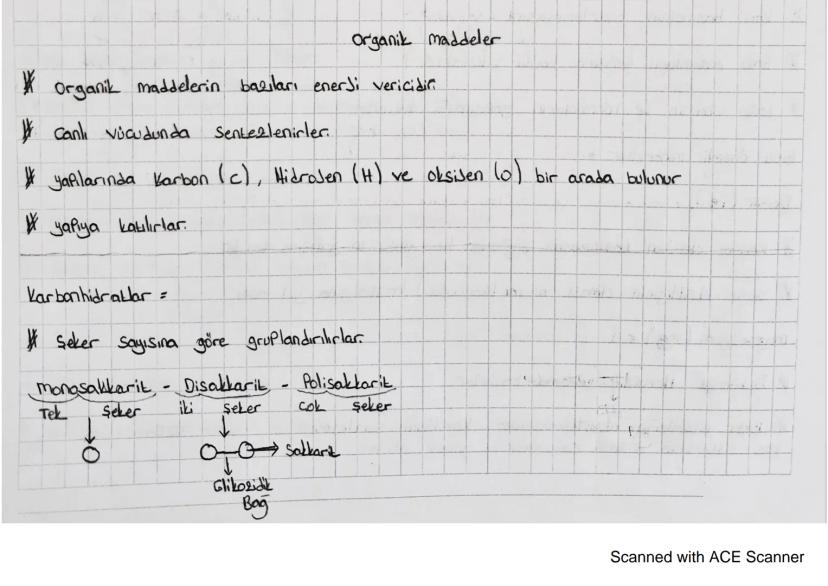 Organik maddeler
* Organik maddelerin bazıları enerji vericidir.
* Canlı vücudunda sentezlenirler.
* yapılarında Karbon (C), Hidrojen (H) ve oksijen (O) bir arada bulunur
* yapıya katılırlar.
Karbonhidratlar =
* Şeker sayısına göre gruplandırılırlar.
monosakkarit - Disakkarit - Polisakkarit
Tek şeker iki şeker çok şeker
Sakkarit
Glikozidik
Bağ
Scanned with ACE Scanner